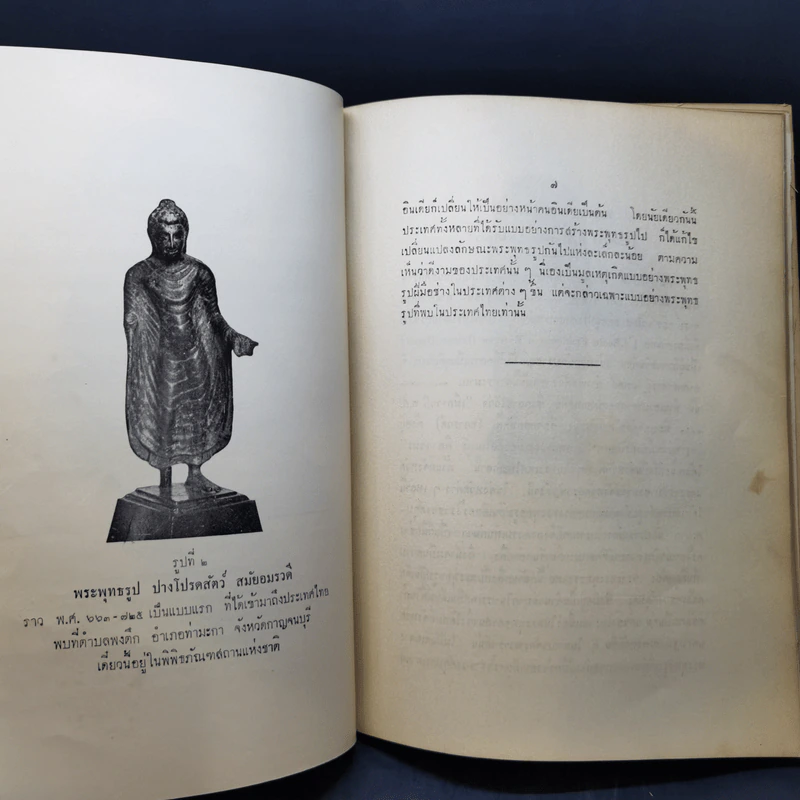 รูปที่ ๒
พระพุทธรูป ปางโปรดสัตว์ สมัยอมรวดี
ราว พ.ศ. ๖๖๓-๗๒๕ เป็นแบบแรก ที่ได้เข้ามาถึงประเทศไทย
พบที่ตำบลพงตึก อำเภอท่ามะกา จังหวัดกาญจนบุรี
เดี๋ยวนี้อยู่ในพิพิธภัณฑสถานแห่งชาติ
๗
อินเดียก็เปลี่ยนให้เป็นอย่างหน้าคนอินเดียเป็นต้น โดยนัยเดียวกันนี้
ประเทศทั้งหลายที่ได้รับแบบอย่างการสร้างพระพุทธรูปไป ก็ได้แก้ไข
เปลี่ยนแปลงลักษณะพระพุทธรูปกันไปแห่งละเล็กละน้อย ตามความ
เห็นว่าดีงามของประเทศนั้น ๆ นี่เองเป็นมูลเหตุเกิดแบบอย่างพระพุทธ
รูปฝีมือช่างในประเทศต่าง ๆ ขึ้น แต่จะกล่าวเฉพาะแบบอย่างพระพุทธ
รูปที่พบในประเทศไทยเท่านั้น